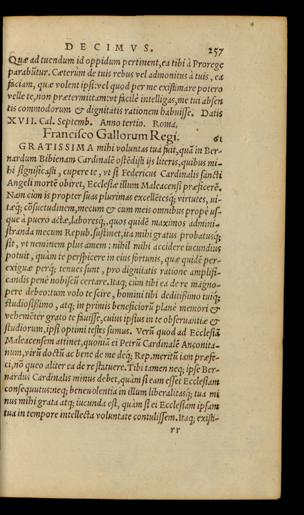 DECIMVS. 257
Quæ ad tuendum id oppidum pertinent, ea tibi à Prorege
parabũtur. Cæterum de tuis rebus vel admonitus à tuis, ea
faciam, quæ volent ipsi: vel quod per me existimare potero
velle te, non prætermittam: vt facilè intelligas, me tui absen
tis commodorum & dignitatis rationem habuisse. Datis
XVII. Cal. Septemb. Anno tertio. Roma.
Francisco Gallorum Regi. 61
GRATISSIMA mihi voluntas tua fuit, quã in Ber-
nardum Bibienam Cardinalẽ ostẽdisti ijs literis, quibus mi-
hi significasti, cupere te, vt si Federicus Cardinalis sancti
Angeli mortẽ obiret, Ecclesiæ illum Maleacensi præficerẽ.
Nam cùm is propter suas plurimas excellẽtesq; virtutes, ui-
tæq; cõsuetudinem, mecum & cum meis omnibus propè us-
que à puero actæ, laboresq;, quos quidẽ maximos admini-
stranda mecum Repub. sustinet, ita mihi gratus probatusq;
sit, vt neminem plus amem: nihil mihi accidere iucundius
potuit, quàm te perspicere in eius fortunis, quæ quidẽ per-
exiguæ perq; tenues sunt, pro dignitatis ratione amplifi-
candis penè nobiscũ certare. Itaq; cùm tibi ea de re magno-
pere debeo: tum volo te scire, homini tibi deditißimo tuiq;
studiosißimo, atq; in primis beneficiorũ planè memori &
vehemẽter grato te fauisse, cuius ipsius in te obseruantiæ &
studiorum, ipsi optimi testes sumus. Verũ quod ad Ecclesiã
Maleacensem attinet, quoniã ei Petrũ Cardinalẽ Anconita-
num, virũ doctũ ac bene de me deq; Rep. meritũ iam præfe-
ci, nõ queo aliter ea de re statuere. Tibi tamen neq; ipse Ber-
nardus Cardinalis minus debet, quàm si eam esset Ecclesiam
consequutus: neq; beneuolentia in illum liberalitasq; tua mi
nus mihi grata atq; iucunda est, quàm si ei Ecclesiam ipsam
tua in tempore intellecta voluntate contulissem. Itaq; existi-
rr